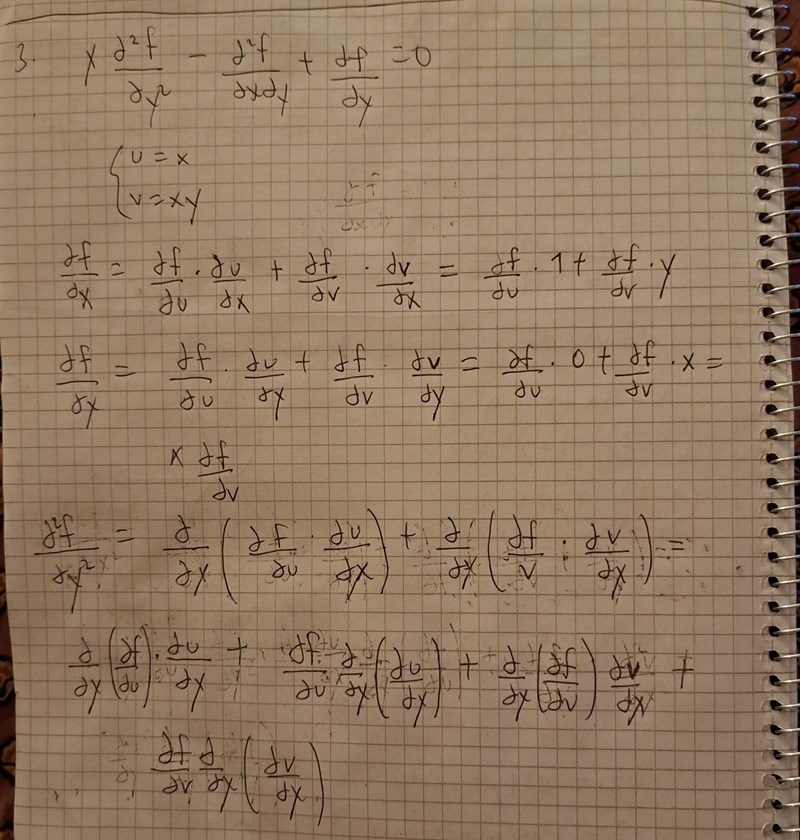 3. x ∂²f/∂y² − ∂²f/∂x∂y + ∂f/∂y = 0
{ u = x
v = xy
∂f/∂x = ∂f/∂u · ∂u/∂x + ∂f/∂v · ∂v/∂x = ∂f/∂u · 1 + ∂f/∂v · y
∂f/∂y = ∂f/∂u · ∂u/∂y + ∂f/∂v · ∂v/∂y = ∂f/∂u · 0 + ∂f/∂v · x =
x ∂f/∂v
∂²f/∂y² = ∂/∂y (∂f/∂u · ∂u/∂y) + ∂/∂y (∂f/∂v · ∂v/∂y) =
∂/∂y (∂f/∂u) · ∂u/∂y + ∂f/∂u ∂/∂y (∂u/∂y) + ∂/∂y (∂f/∂v) ∂v/∂y +
∂f/∂v ∂/∂y (∂v/∂y)